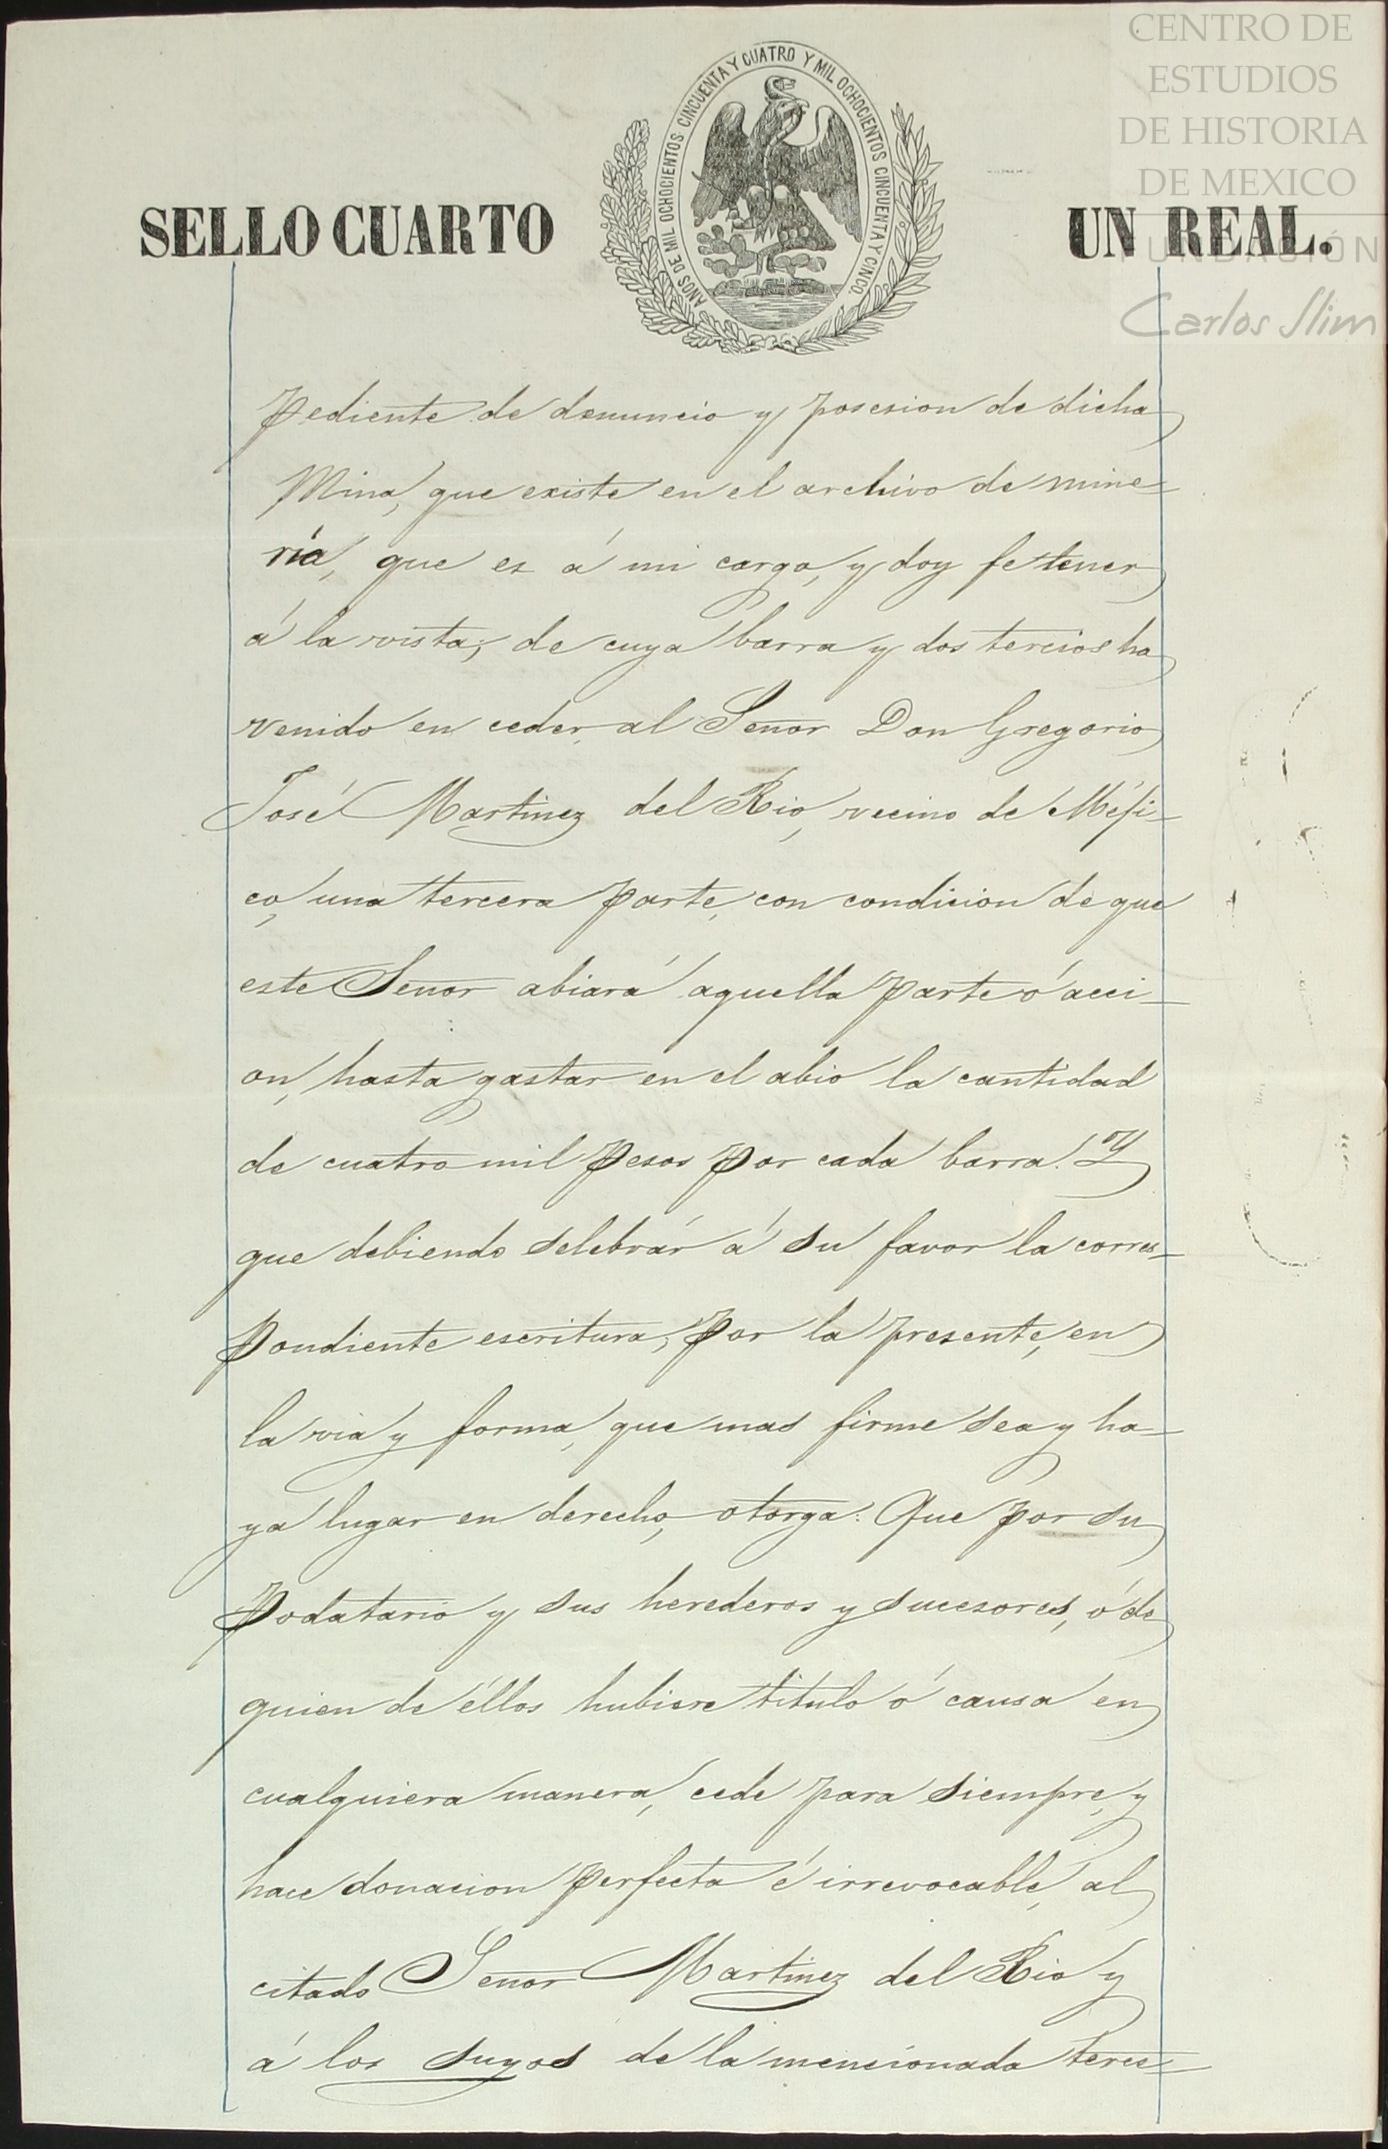 CENTRO DE
ESTUDIOS
DE HISTORIA
DE MEXICO
FUNDACIÓN
Carlos Slim
AÑOS DE MIL OCHOCIENTOS CINCUENTA Y CUATRO Y MIL OCHOCIENTOS CINCUENTA Y CINCO.
SELLO CUARTO UN REAL.
pediente de denuncio y posesion de dicha
Mina, que existe en el archivo de mine-
ría, que es á mi cargo, y doy fe tener
á la vista; de cuya barra y dos tercios ha
venido en ceder al Señor Don Gregorio
José Martinez del Rio, vecino de Méji-
co, una tercera parte, con condicion de que
este Señor abiará aquella parte ó acci-
on, hasta gastar en el abio la cantidad
de cuatro mil pesos por cada barra. Y
que debiendo selebrár á su favor la corres-
pondiente escritura, por la presente, en
la via y forma, que mas firme sea y ha-
ya lugar en derecho, otorga: Que por su
podatario y sus herederos y sucesores, ó de
quien de éllos hubiere titulo ó causa en
cualquiera manera, cede para siempre, y
hace donacion perfecta é irrevocable, al
citado Señor Martinez del Rio y
á los suyos de la mencionada terce-